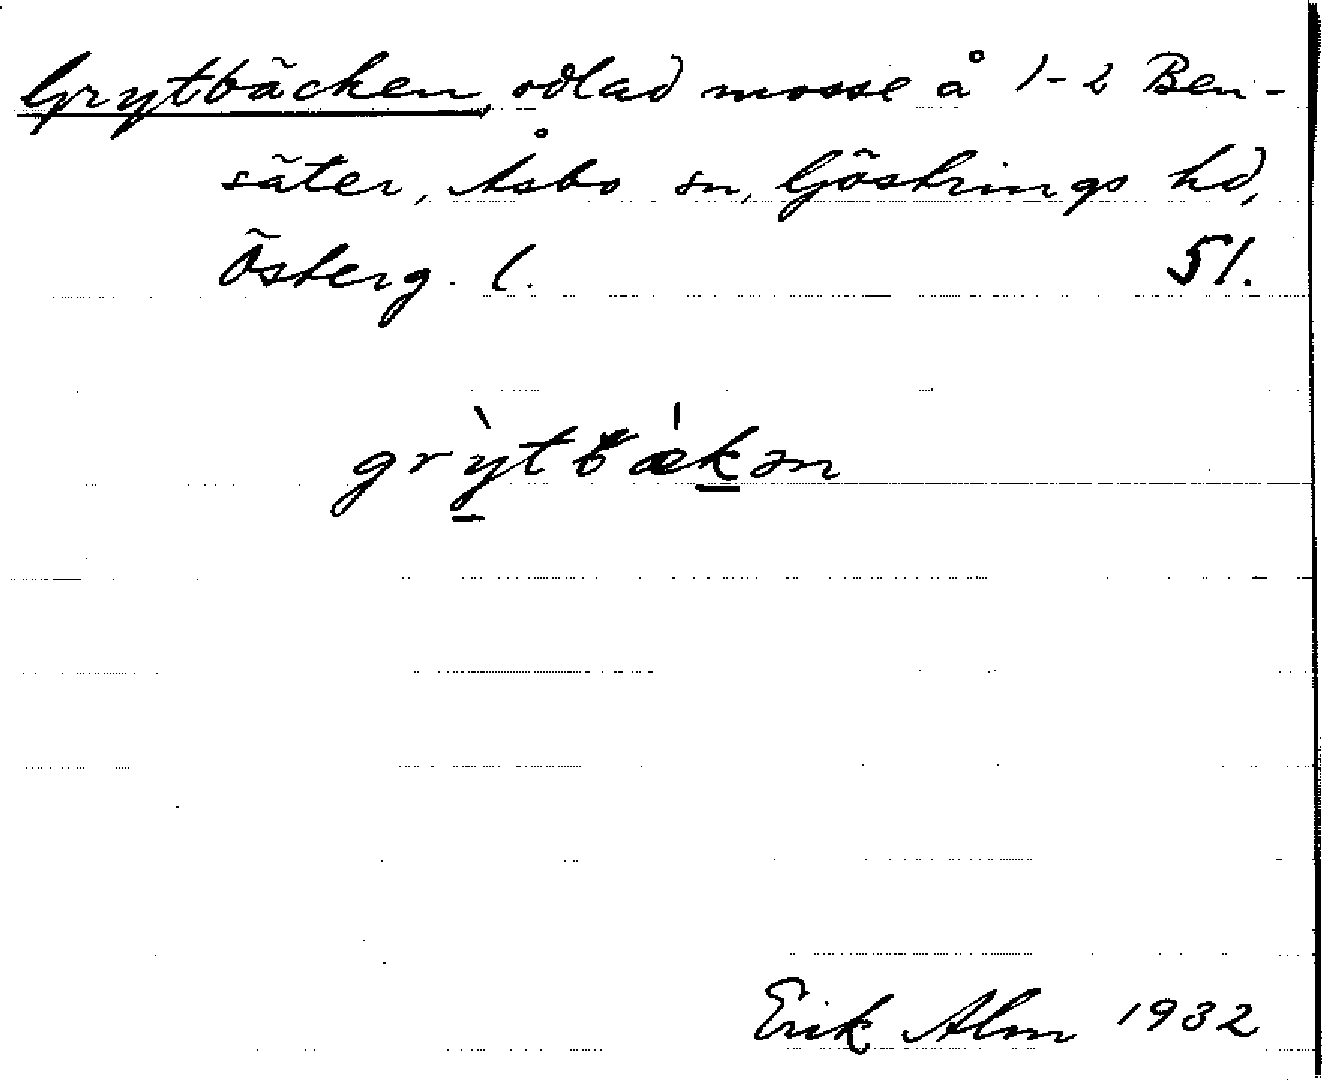 Grytbäcken, odlad mosse å 1-2 Ben-
säter, Åsbo sn, Göstrings hd,
Österg. l. 51.
grỳtbǽkən
Erik Alm 1932